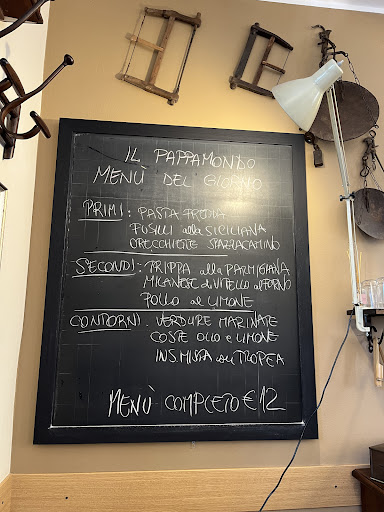 IL PAPPAMONDO
MENÙ DEL GIORNO
PRIMI: PASTA FREDDA
FUSILLI alla SICILIANA
ORECCHIETTE SPAZZACAMINO
SECONDI: TRIPPA alla PARMIGIANA
MILANESE di VITELLO al FORNO
POLLO al LIMONE
CONTORNI. VERDURE MARINATE
COSTE OLIO e LIMONE
INS. MISTA con TROPEA
MENÙ COMPLETO € 12